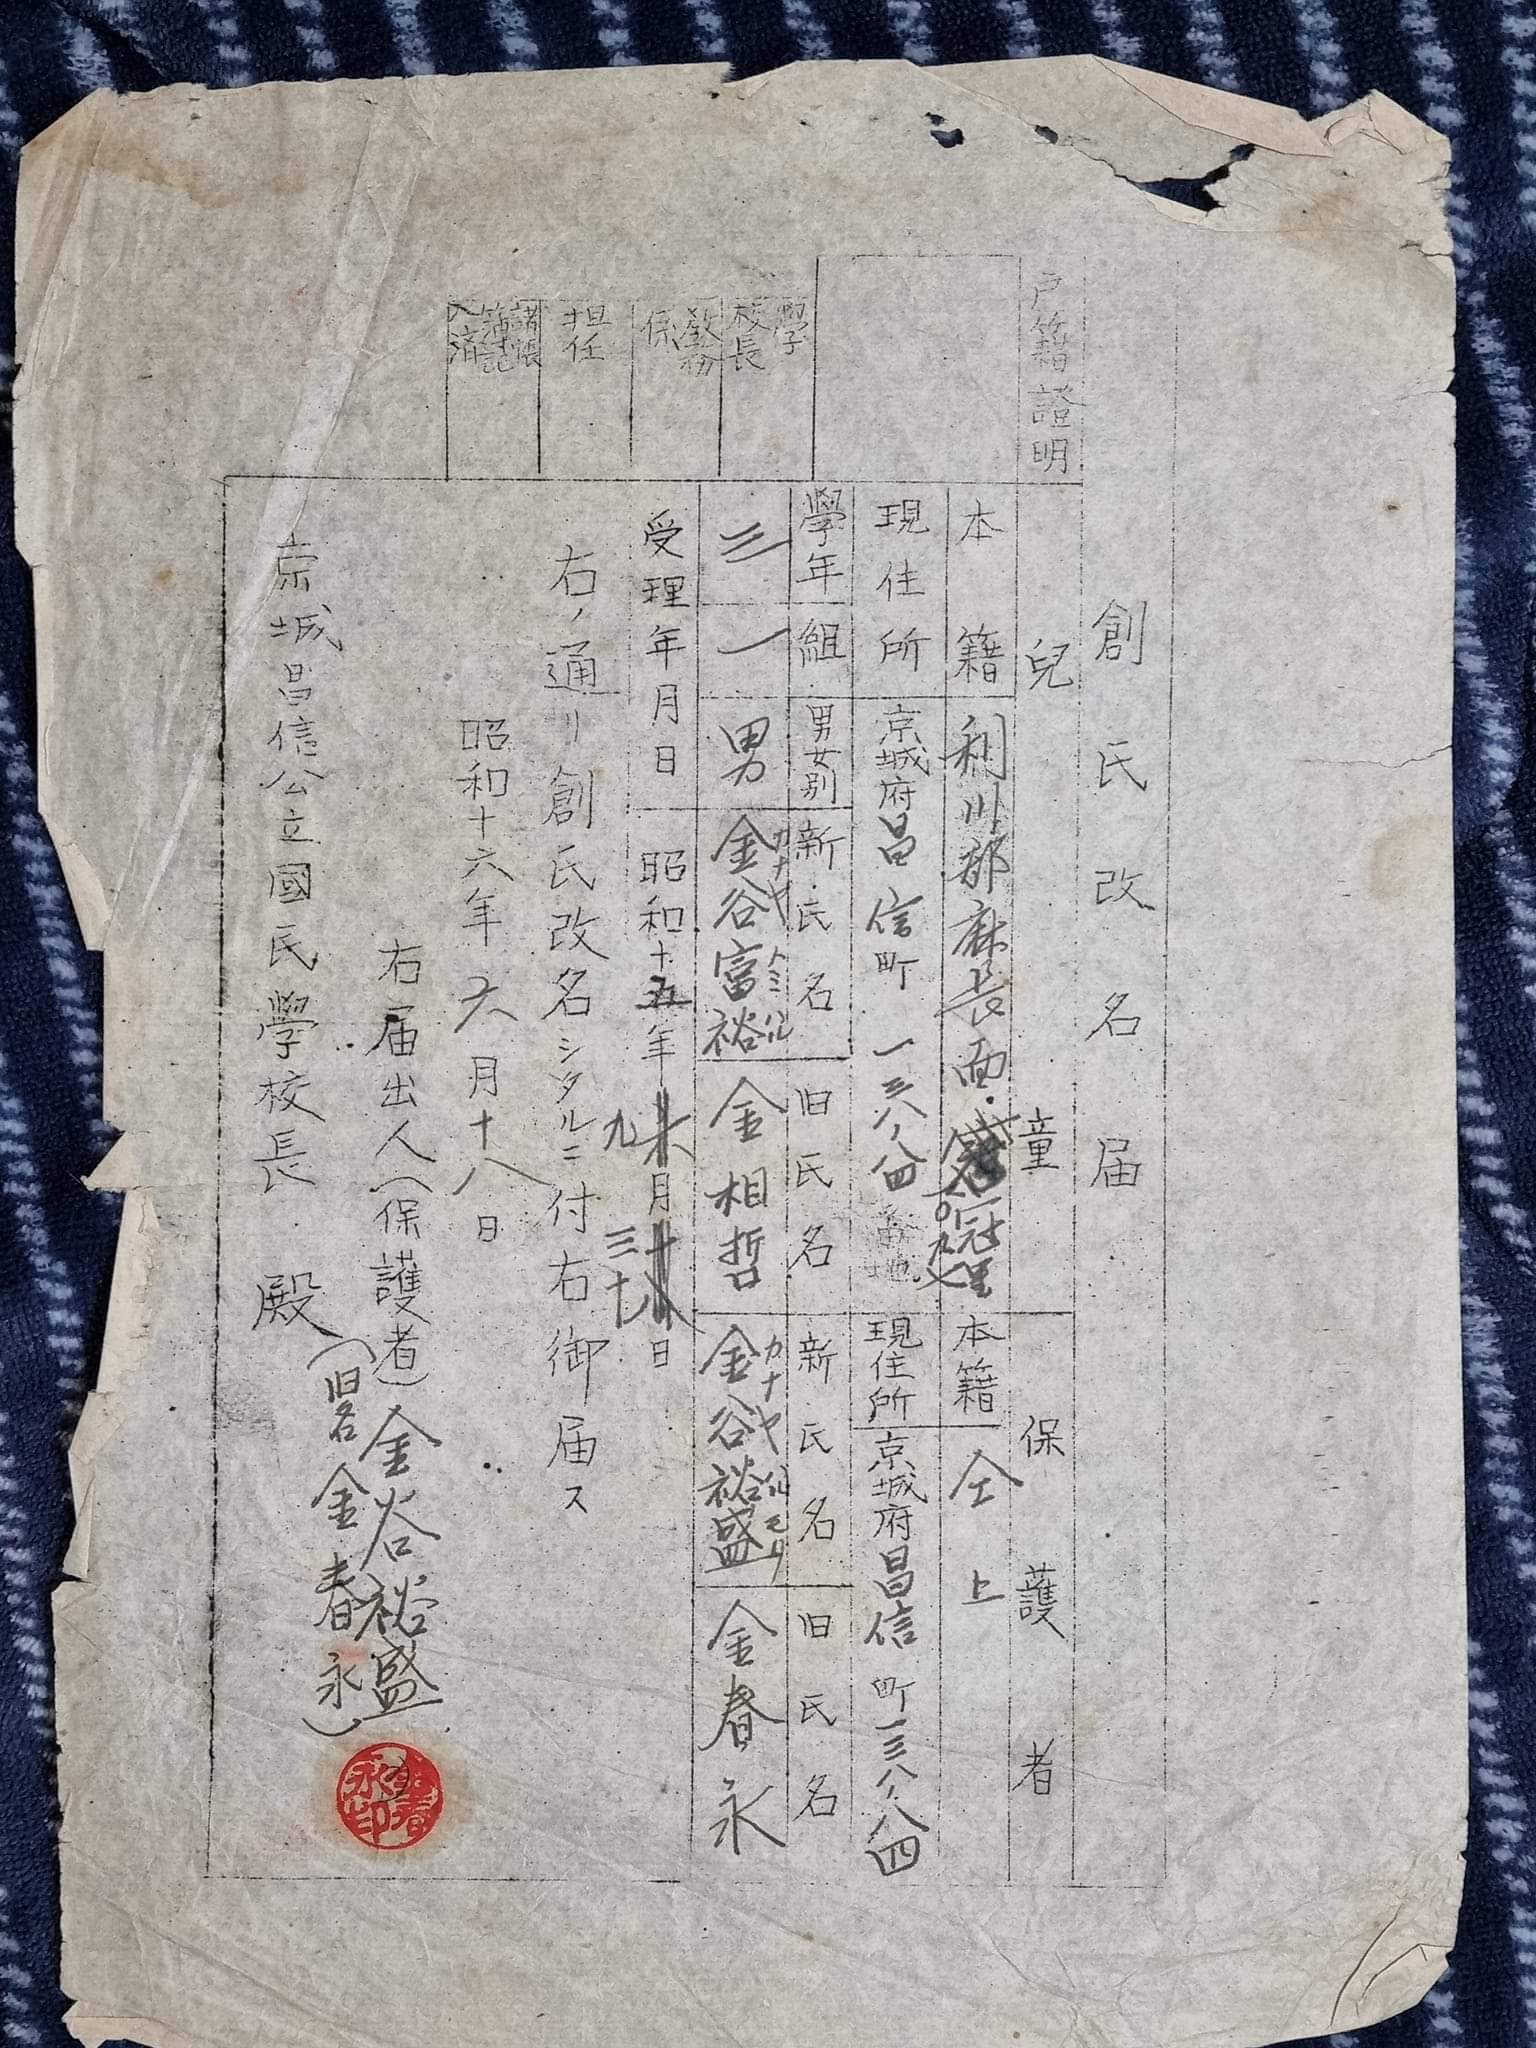 創氏改名届
戸籍證明
兒童
保護者
本籍
利川郡麻長面冠里
本籍
仝上
現住所
京城府昌信町一三八ノ八四番地
現住所
京城府昌信町一三八ノ八四
學年
組
男女別
新氏名
旧氏名
新氏名
旧氏名
三
一
男
金谷富裕
カナヤ
トミ
金相哲
金谷裕盛
カナヤ
モリ
金春永
受理年月日
昭和十五年九月三十日
右ノ通リ創氏改名シタルニ付右御届ス
昭和十六年六月十八日
右届出人(保護者)金谷裕盛
(旧名金春永)
金春永印
京城昌信公立國民學校長殿
學校長
教務係
担任
諸帳簿記入済